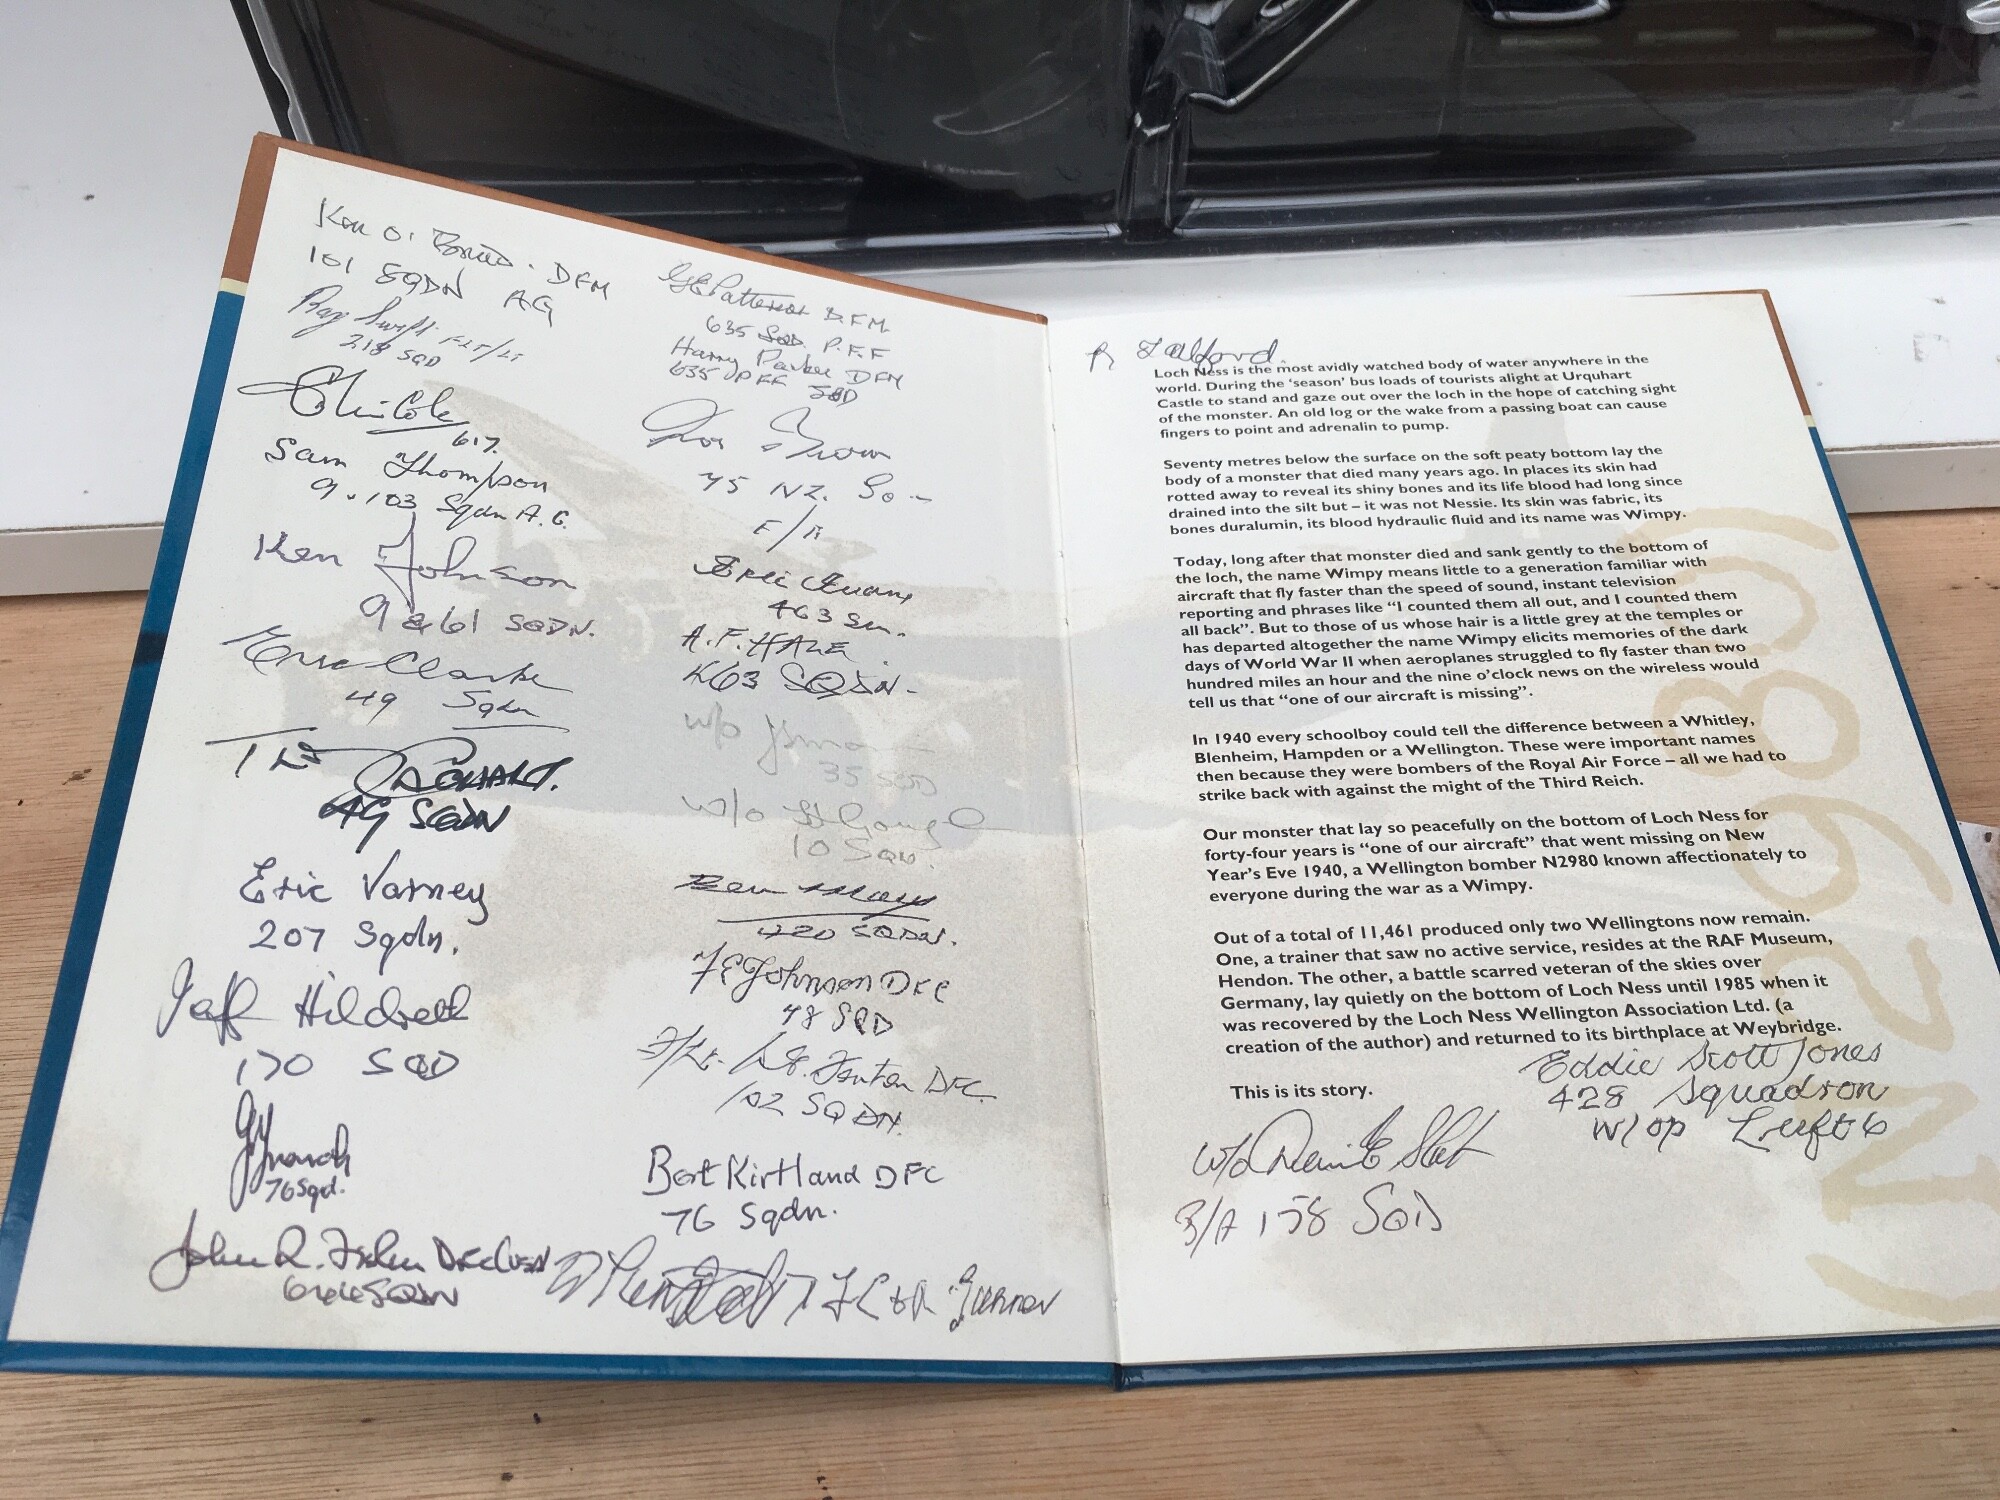 101 SQDN AG
DFM
Ray Swift FLT/LT
218 SQD
Cole
617.
Sam Thompson
9 + 103 Sqdn A.G.
Ken Johnson
9 & 61 SQDN.
Eric Clarke
49 Sqdn
49 SQDN
Eric Varney
207 Sqdn.
Hildreth
170 SQD
76 Sqd.
John R.
SQDN
Patterson D.F.M.
635 Sqd. P.F.F
Harry Parker DFM
635 PFF SQD
Brown
75 NZ. Sq
Evans
463 Sqn.
A.F. HALE
463 SQDN.
w/o
35 SQD
w/o H Gough
10 Sqd.
SQDN.
Johnson DFC
78 SQD
F/Lt. Fenton DFC.
102 SQDN.
Bert Kirtland DFC
76 Sqdn.
Gunner
Loch Ness is the most avidly watched body of water anywhere in the
world. During the ‘season’ bus loads of tourists alight at Urquhart
Castle to stand and gaze out over the loch in the hope of catching sight
of the monster. An old log or the wake from a passing boat can cause
fingers to point and adrenalin to pump.
Seventy metres below the surface on the soft peaty bottom lay the
body of a monster that died many years ago. In places its skin had
rotted away to reveal its shiny bones and its life blood had long since
drained into the silt but – it was not Nessie. Its skin was fabric, its
bones duralumin, its blood hydraulic fluid and its name was Wimpy.
Today, long after that monster died and sank gently to the bottom of
the loch, the name Wimpy means little to a generation familiar with
aircraft that fly faster than the speed of sound, instant television
reporting and phrases like “I counted them all out, and I counted them
all back”. But to those of us whose hair is a little grey at the temples or
has departed altogether the name Wimpy elicits memories of the dark
days of World War II when aeroplanes struggled to fly faster than two
hundred miles an hour and the nine o’clock news on the wireless would
tell us that “one of our aircraft is missing”.
In 1940 every schoolboy could tell the difference between a Whitley,
Blenheim, Hampden or a Wellington. These were important names
then because they were bombers of the Royal Air Force – all we had to
strike back with against the might of the Third Reich.
Our monster that lay so peacefully on the bottom of Loch Ness for
forty-four years is “one of our aircraft” that went missing on New
Year’s Eve 1940, a Wellington bomber N2980 known affectionately to
everyone during the war as a Wimpy.
Out of a total of 11,461 produced only two Wellingtons now remain.
One, a trainer that saw no active service, resides at the RAF Museum,
Hendon. The other, a battle scarred veteran of the skies over
Germany, lay quietly on the bottom of Loch Ness until 1985 when it
was recovered by the Loch Ness Wellington Association Ltd. (a
creation of the author) and returned to its birthplace at Weybridge.
This is its story.
Eddie Scott Jones
428 Squadron
W/OP Luft 6
W/O
B/A 158 SQD
(N2980)